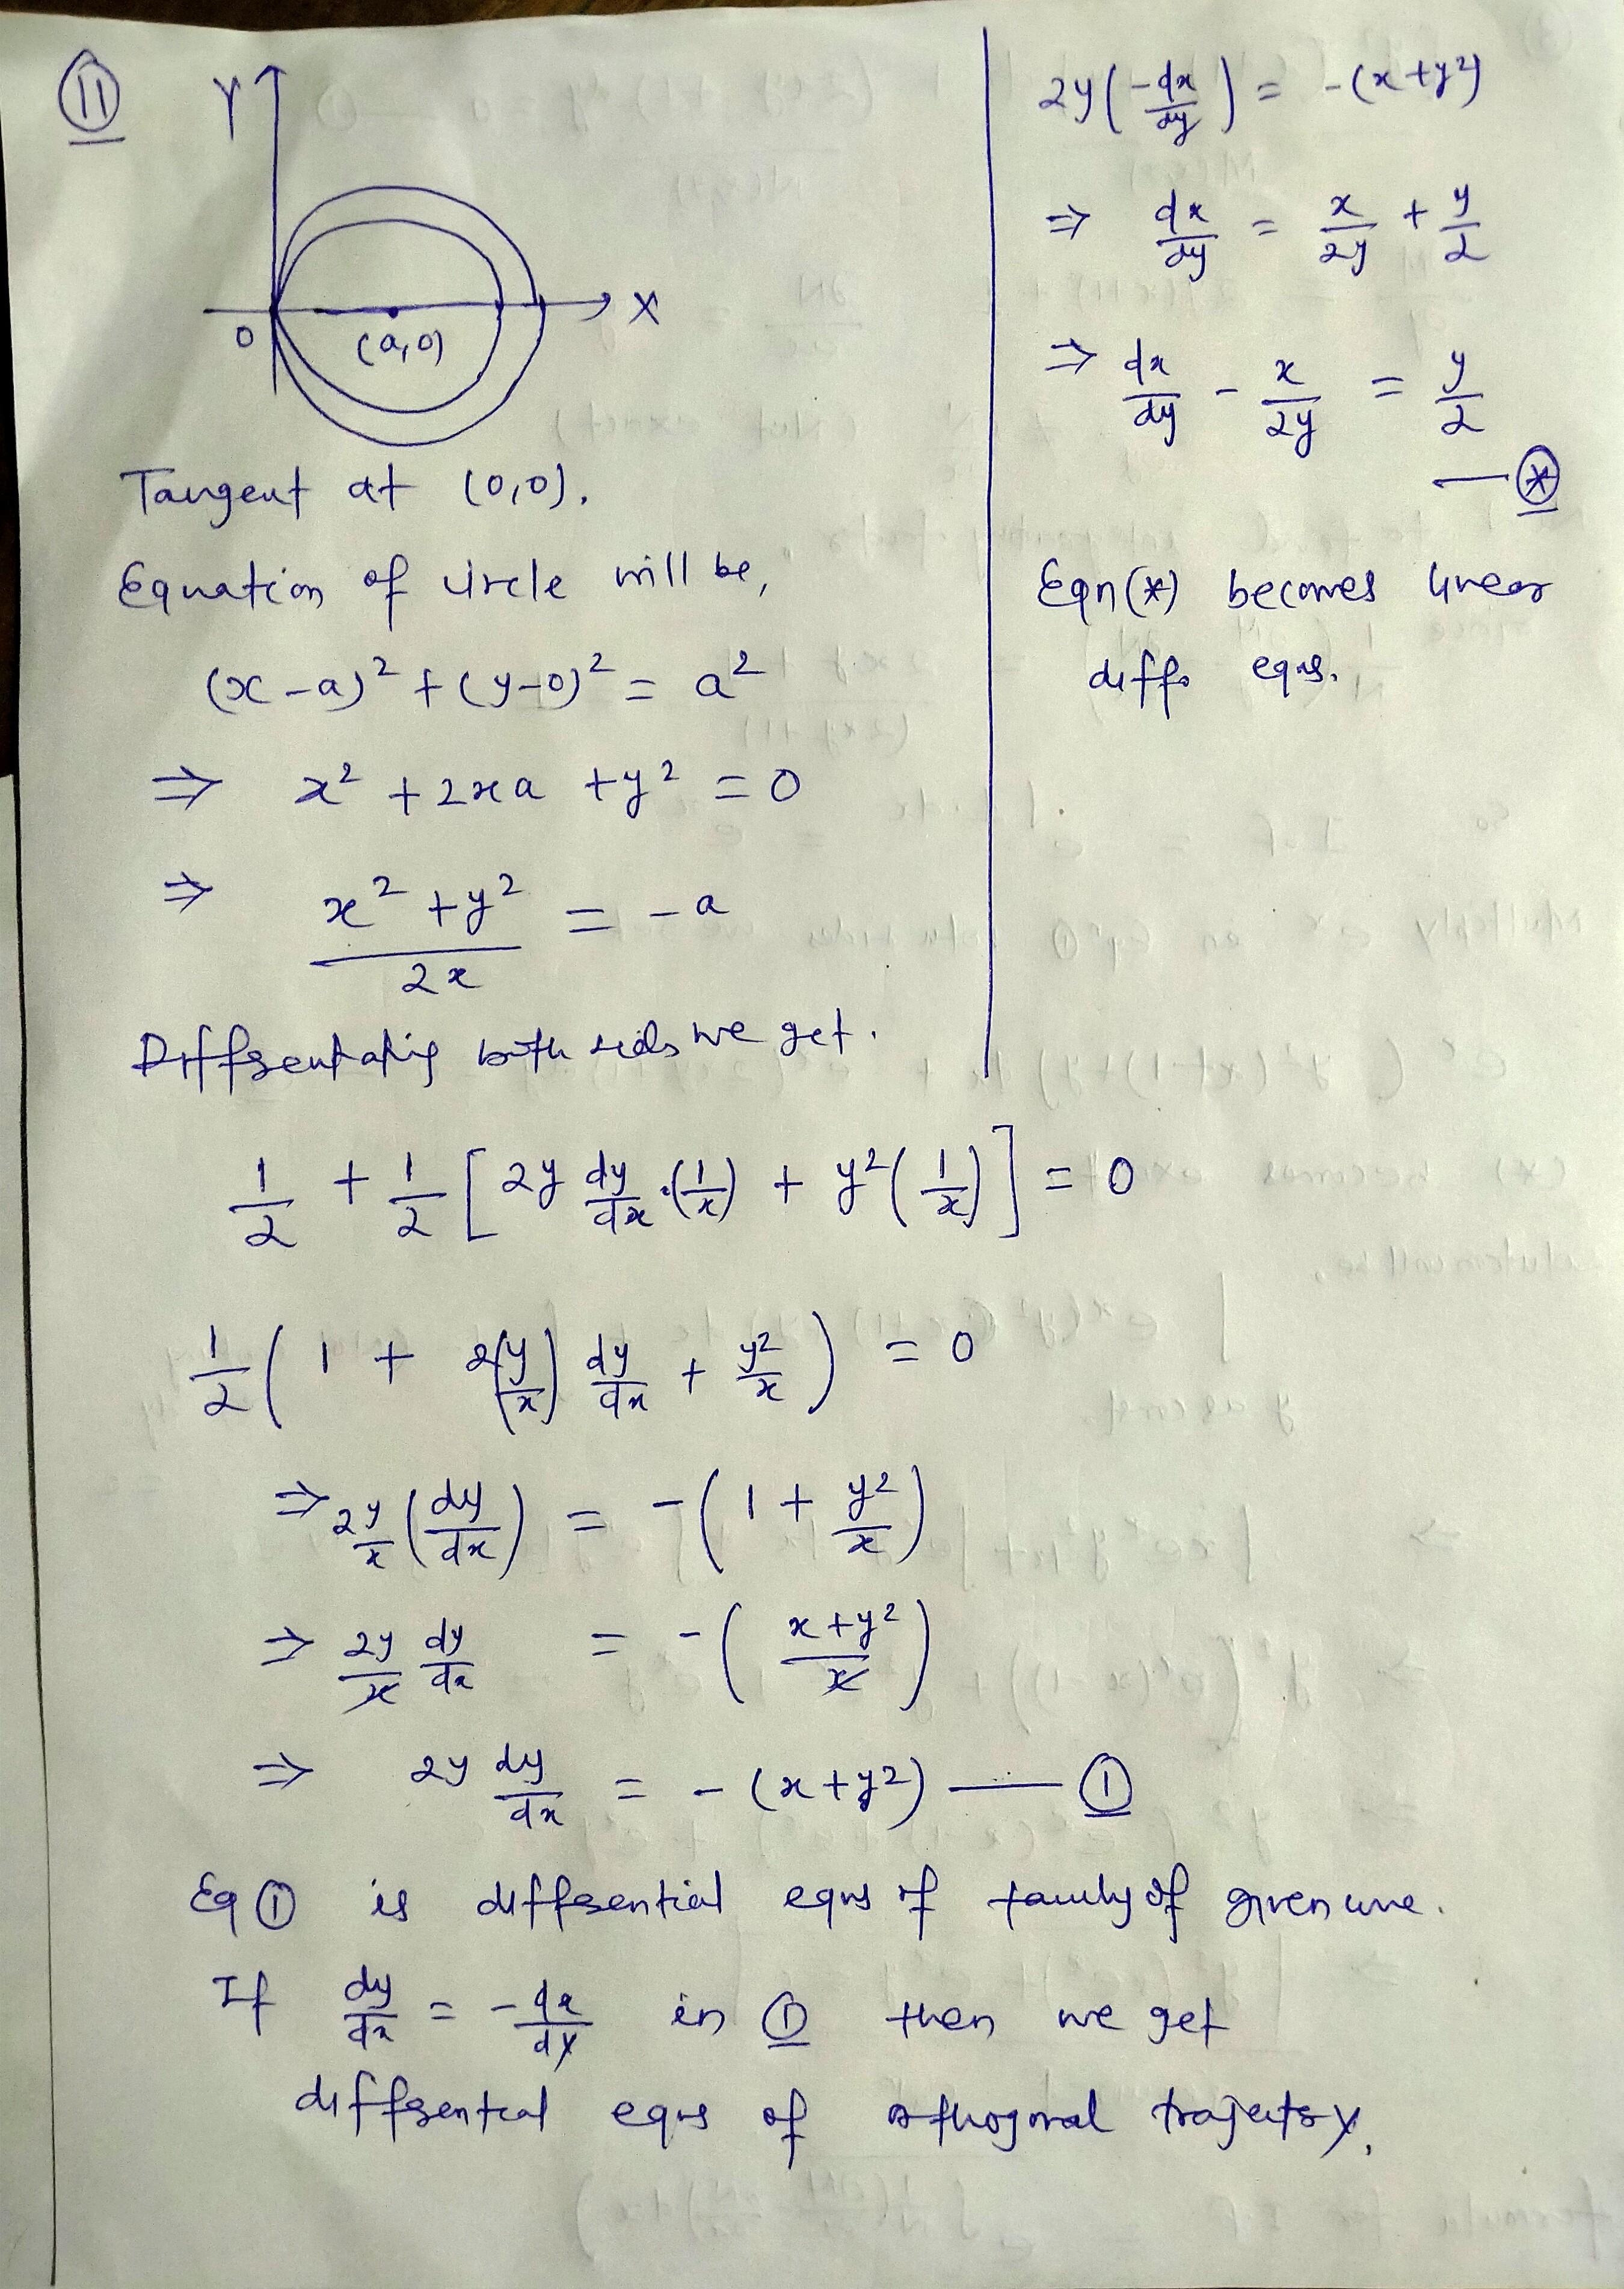 11
Y
X
0
(a,0)
Tangent at (0,0).
Equation of circle will be,
(x-a)² + (y-0)² = a²
⇒ x² + 2xa + y² = 0
⇒ (x² + y²)/2x = -a
Differentating both sids we get.
1/2 + 1/2 [2y dy/dx · (1/x) + y² (1/x)] = 0
1/2 (1 + 2(y/x) dy/dx + y²/x) = 0
⇒ 2y/x (dy/dx) = -(1 + y²/x)
⇒ 2y/x dy/dx = -((x + y²)/x)
⇒ 2y dy/dx = -(x + y²) — ①
Eq ① is differential eqns of family of given curve.
If dy/dx = -dx/dy in ① then we get
differential eqns of orthogonal trajectory.
2y(-dx/dy) = -(x + y²)
⇒ dx/dy = x/2y + y/2
⇒ dx/dy - x/2y = y/2
— (*)
Eqn(*) becomes linear
diff. eqns.